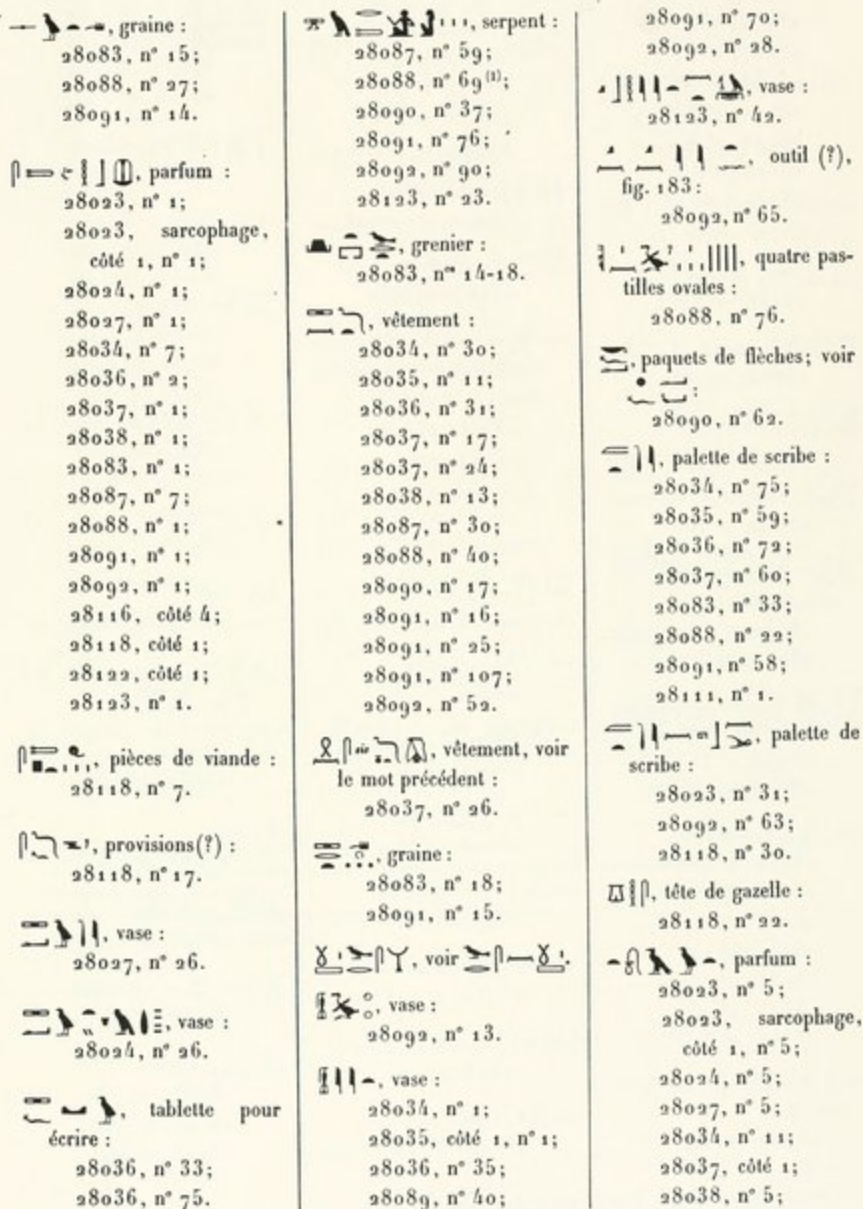 , graine :
28083, n° 15;
28088, n° 27;
28091, n° 14.
, parfum :
28023, n° 1;
28023, sarcophage,
côté 1, n° 1;
28024, n° 1;
28027, n° 1;
28034, n° 7;
28036, n° 2;
28037, n° 1;
28038, n° 1;
28083, n° 1;
28087, n° 7;
28088, n° 1;
28091, n° 1;
28092, n° 1;
28116, côté 4;
28118, côté 1;
28122, côté 1;
28123, n° 1.
, pièces de viande :
28118, n° 7.
, provisions(?) :
28118, n° 17.
, vase :
28027, n° 26.
, vase :
28024, n° 26.
, tablette pour
écrire :
28036, n° 33;
28036, n° 75.
, serpent :
28087, n° 59;
28088, n° 69 (1);
28090, n° 37;
28091, n° 76;
28092, n° 90;
28123, n° 23.
, grenier :
28083, nos 14-18.
, vêtement :
28034, n° 30;
28035, n° 11;
28036, n° 31;
28037, n° 17;
28037, n° 24;
28038, n° 13;
28087, n° 30;
28088, n° 40;
28090, n° 17;
28091, n° 16;
28091, n° 25;
28091, n° 107;
28092, n° 52.
, vêtement, voir
le mot précédent :
28037, n° 26.
, graine :
28083, n° 18;
28091, n° 15.
, voir
, vase :
28092, n° 13.
, vase :
28034, n° 1;
28035, côté 1, n° 1;
28036, n° 35;
28089, n° 40;
28091, n° 70;
28092, n° 28.
, vase :
28123, n° 42.
, outil (?),
fig. 183 :
28092, n° 65.
, quatre pas-
tilles ovales :
28088, n° 76.
, paquets de flèches; voir
:
28090, n° 62.
, palette de scribe :
28034, n° 75;
28035, n° 59;
28036, n° 72;
28037, n° 60;
28083, n° 33;
28088, n° 22;
28091, n° 58;
28111, n° 1.
, palette de
scribe :
28023, n° 31;
28092, n° 63;
28118, n° 30.
, tête de gazelle :
28118, n° 22.
, parfum :
28023, n° 5;
28023, sarcophage,
côté 1, n° 5;
28024, n° 5;
28027, n° 5;
28034, n° 11;
28037, côté 1;
28038, n° 5;